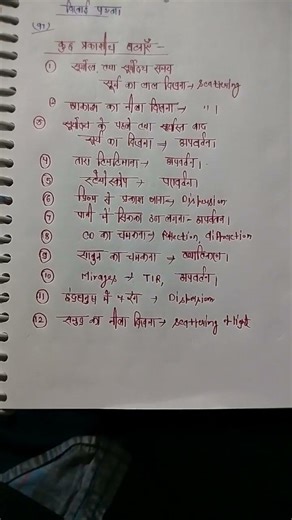 (99)
कुछ प्रकाशीय घटनाएँ -
① सूर्यास्त तथा सूर्योदय समय
सूर्य का लाल दिखना → Scattering
② आकाश का नीला दिखना → " ।
③ सूर्योदय के पहले तथा सूर्यास्त बाद
सूर्य का दिखना → अपवर्तन।
④ तारा टिमटिमाना → अपवर्तन।
⑤ → परावर्तन।
⑥ प्रिज्म से प्रकाश जाना → Dispersion
⑦ पानी में सिक्का उठा लगना - अपवर्तन।
⑧ CD का चमकना → Reflection, diffraction
⑨ साबुन का चमकना → व्यतिकरण।
⑩ Mirages → TIR, अपवर्तन।
⑪ इंद्रधनुष में 7 रंग → Dispersion
⑫ समुद्र का नीला दिखना → Scattering of light